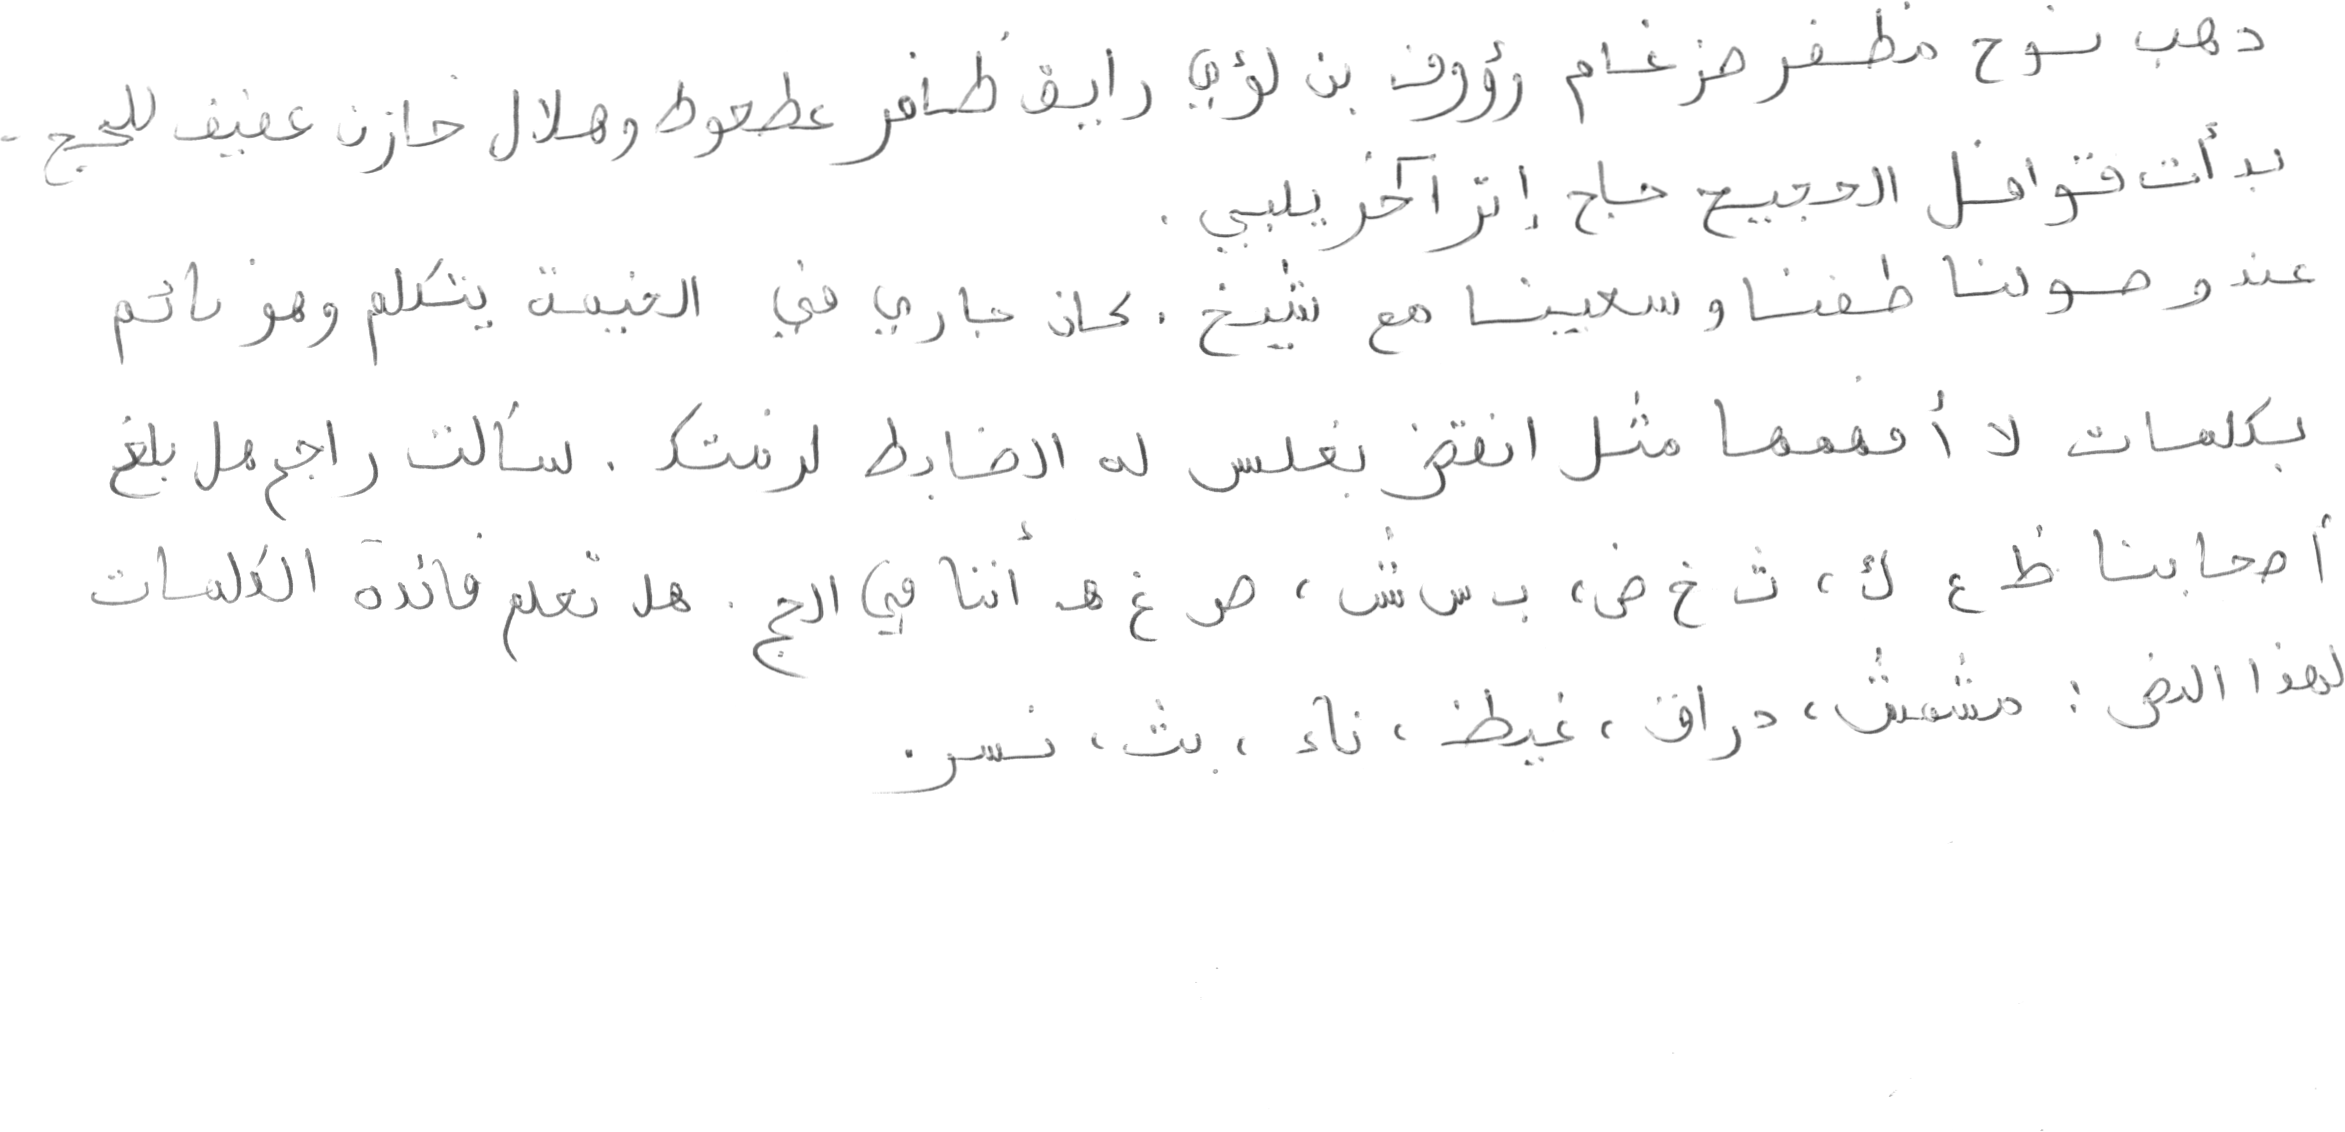 ذهب نوح مظفر ضرغام رؤوف بن لؤي رايق ظافر عطعوط وهلال خازن عفيف للحج .
بدأت قوافل الحجيج حاج إثر آخر يلبي .
عند وصولنا طفنا وسعينا مع شيخ . كان جاري في الخيمة يتكلم وهو نائم
بكلمات لا أفهمها مثل انقض بغلس له الضابط لرفتك . سألت راجح هل بلغ
أصحابنا ظ ع ك ، ث خ ض ، ب س ش ، ص غ هـ أننا في الحج . هل تعلم فائدة الكلمات
لهذا النص : مشمش ، دراق ، غيظ ، ناء ، بث ، نسر .